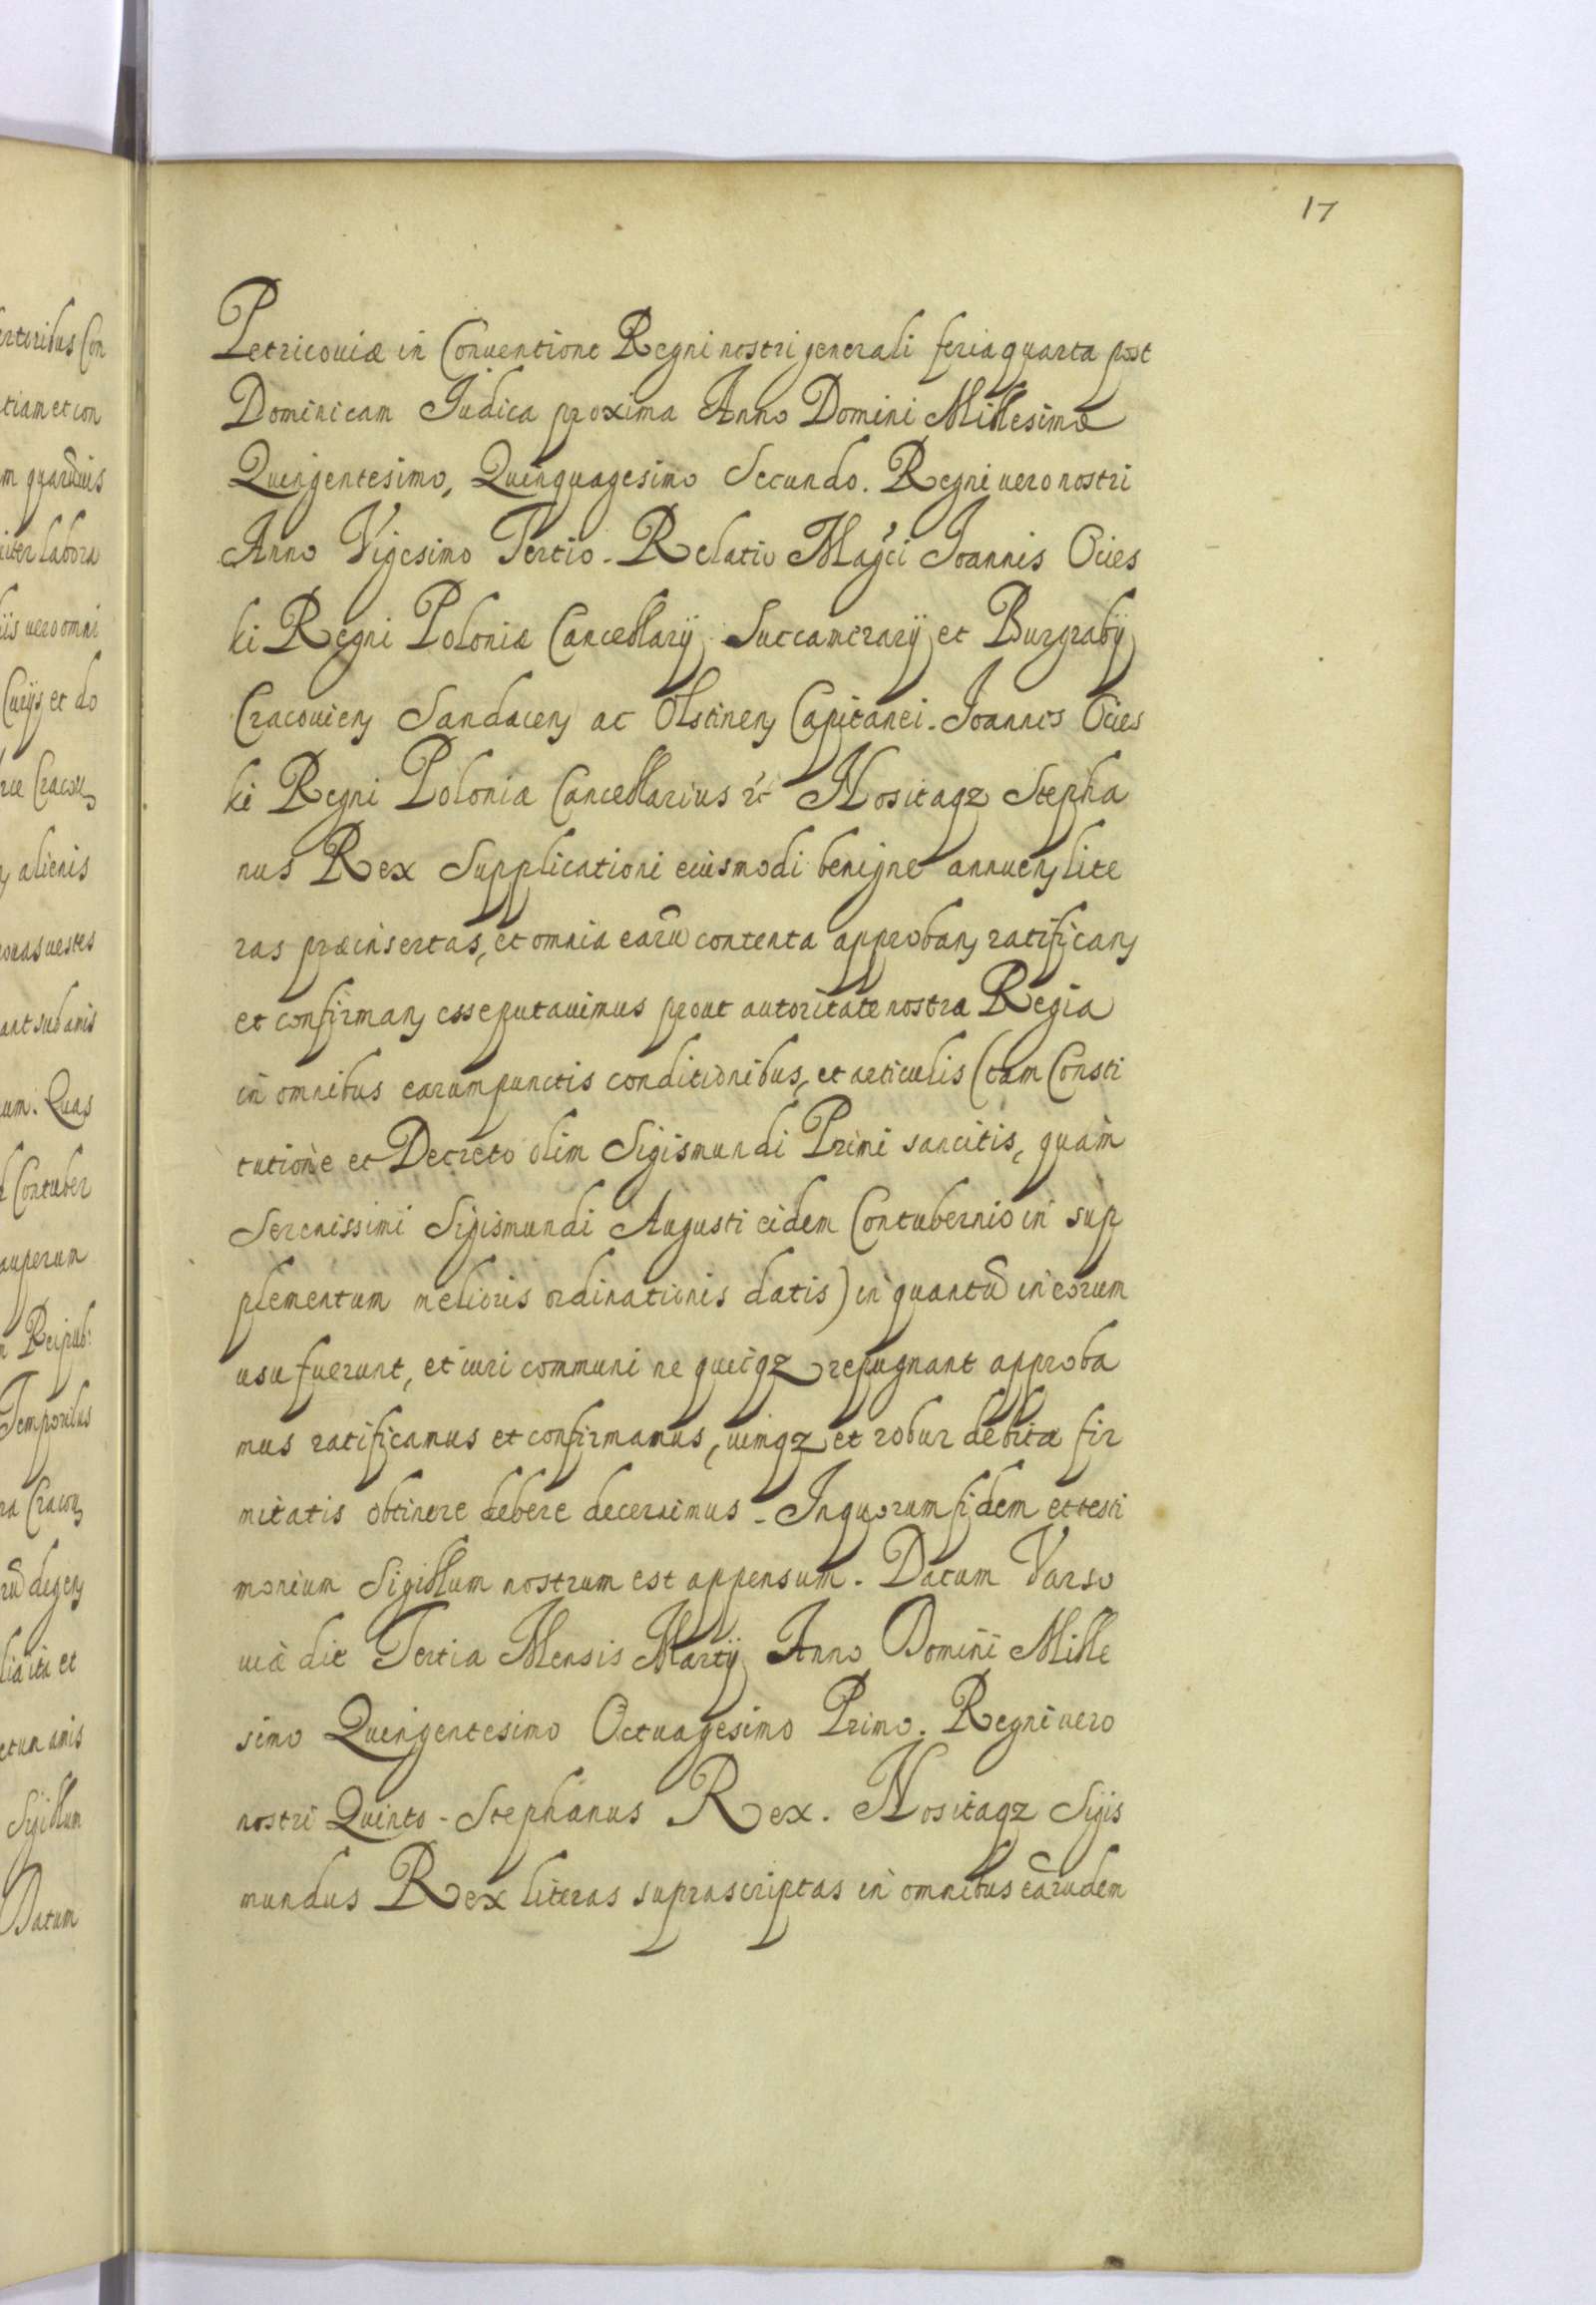 17
Petricouiæ in Conuentione Regni nostri generali feria quarta post
Dominicam Judica proxima Anno Domini Millesimo
Quingentesimo, Quinquagesimo Secundo. Regni uero nostri
Anno Vigesimo Tertio. Relatio Mag̃ci Joannis Ocies
ki Regni Poloniæ Cancellarÿ Succamerarÿ et Burgrabÿ
Cracouieñ Sandaceñ ac Olstineñ Capitanei. Joannes Ocies
ki Regni Poloniæ Cancellarius &c Nos itaqz Stepha
nus Rex Supplicationi eiusmodi benigne annueñ lite
ras præinsertas, et omnia earũ contenta approbañ ratificañ
et confirmañ esse putauimus prout autoritate nostra Regia
in omnibus earum punctis conditionibus, et articulis (tam Consti
tutione et Decreto olim Sigismundi Primi sancitis, quàm
Serenissimi Sigismundi Augusti eidem Contubernio in sup
plementum melioris ordinationis datis) in quantũ in eorum
usu fuerunt, et iuri communi ne queiqz repugnant approba
mus ratificamus et confirmamus, uimqz et robur debitæ fir
mitatis obtinere debere decernimus. In quorum fidem et testi
monium Sigillum nostrum est appensum. Datum Varso
uiæ die Tertia Mensis Martÿ Anno Domini Mille
simo Quingentesimo Octuagesimo Primo. Regni uero
nostri Quinto. Stephanus Rex. Nos itaqz Sigis
mundus Rex literas suprascriptas in omnibus earũdem